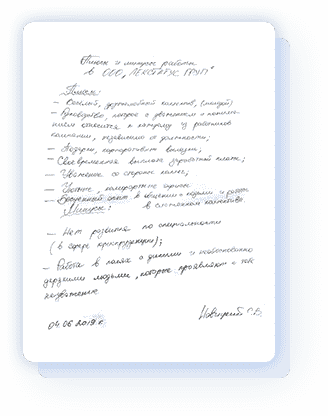 Плюсы и минусы работы
в ООО „ЛЕКСТАРУС ГРУПП"
Плюсы:
- Весёлый, дружелюбный коллектив, (молодой)
- Руководство, которое с уважением и понима-
нием относится к каждому из работников
компании, независимо от должности;
- Подарки, корпоративные выезды;
- Своевременная выплата заработной платы;
- Уважение со стороны коллег;
- Уютные, комфортные офисы
- Бесценный опыт в общении с людьми и работе
в сплоченном коллективе.
Минусы:
- Нет развития по специальности
(в сфере юриспруденции);
- Работа в полях с дикими и необоснованно
дерзкими людьми, которые проявляют к тебе
неуважение
04.06.2019 г.
С.В.